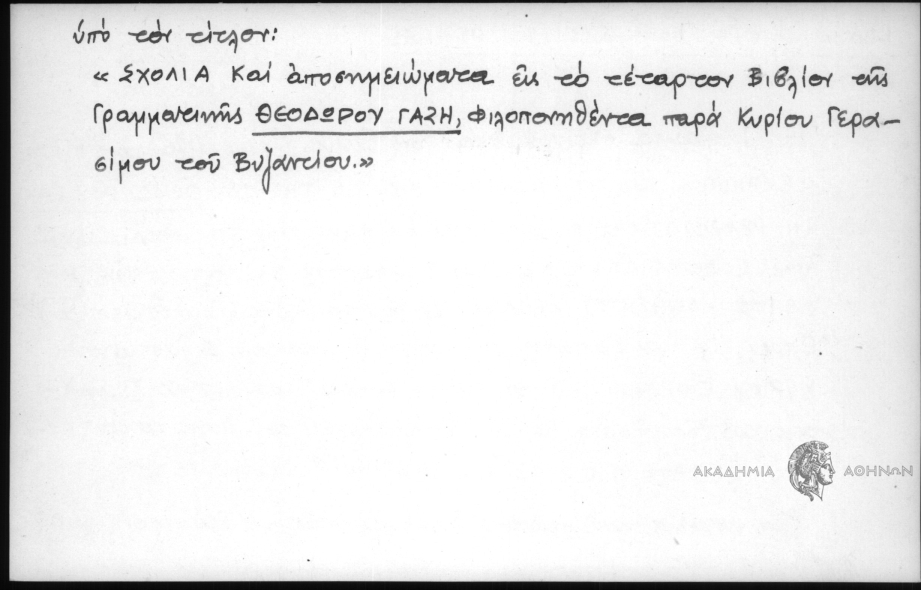 ὑπό τόν τίτλον:
« ΣΧΟΛΙΑ Καί ἀποσημειώματα εἰς τό τέταρτον Βιβλίον τῆς
Γραμματικῆς ΘΕΟΔΩΡΟΥ ΓΑΖΗ, Φιλοπονηθέντα παρά Κυρίου Γερα-
σίμου τοῦ Βυζαντίου.»
ΑΚΑΔΗΜΙΑ ΑΘΗΝΩΝ